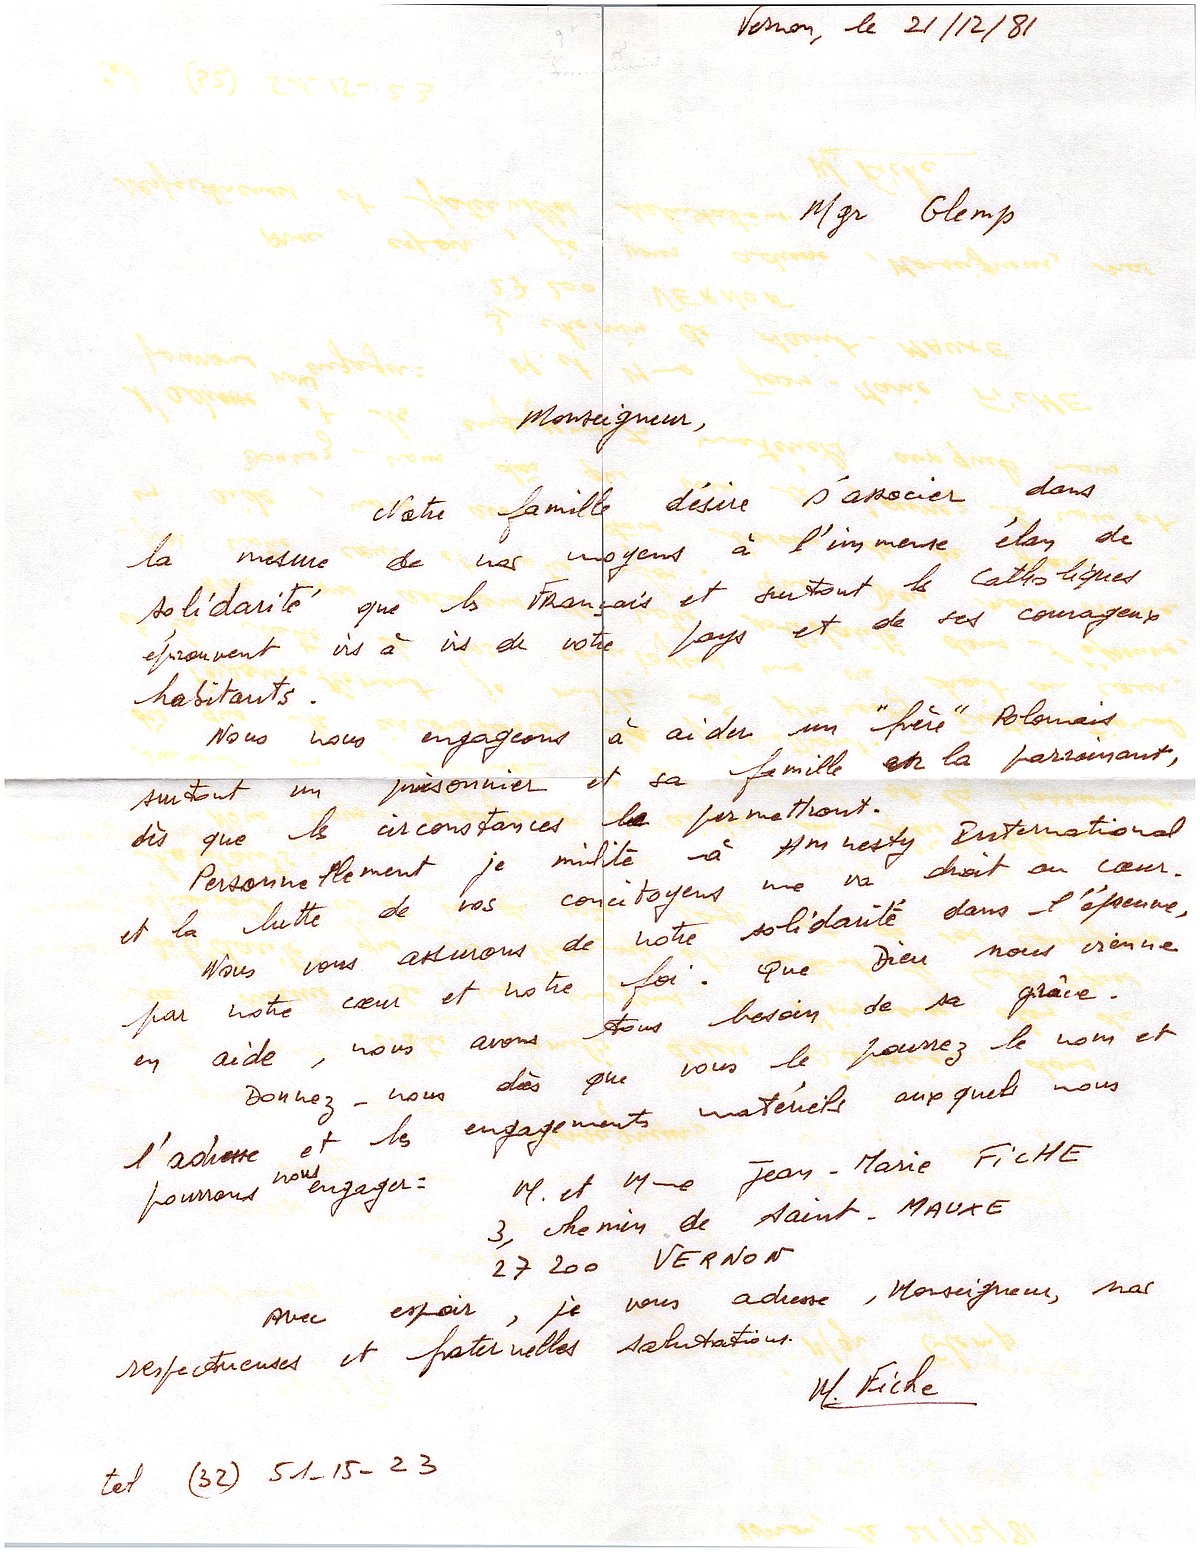 Vernon, le 21/12/81
Mgr Glemp
Monseigneur,
Notre famille désire s'associer dans
la mesure de nos moyens à l'immense élan de
solidarité que les Français et surtout les Catholiques
éprouvent vis à vis de votre pays et de ses courageux
habitants.
Nous nous engageons à aider un "frère" Polonais
surtout un prisonnier et sa famille en la parrainant,
dès que les circonstances le permettront.
Personnellement je milite à Amnesty International
et la lutte de vos concitoyens me va droit au cœur.
Nous vous assurons de notre solidarité dans l'épreuve,
par notre cœur et notre foi. Que Dieu nous vienne
en aide, nous avons tous besoin de sa grâce.
Donnez-nous dès que vous le pourrez le nom et
l'adresse et les engagements matériels auxquels nous
pourrons nous engager :
M. et Mme Jean-Marie FICHE
3, chemin de Saint-MAUXE
27200 VERNON
Avec espoir, je vous adresse, Monseigneur, nos
respectueuses et fraternelles salutations.
M. Fiche
tel (32) 51-15-23